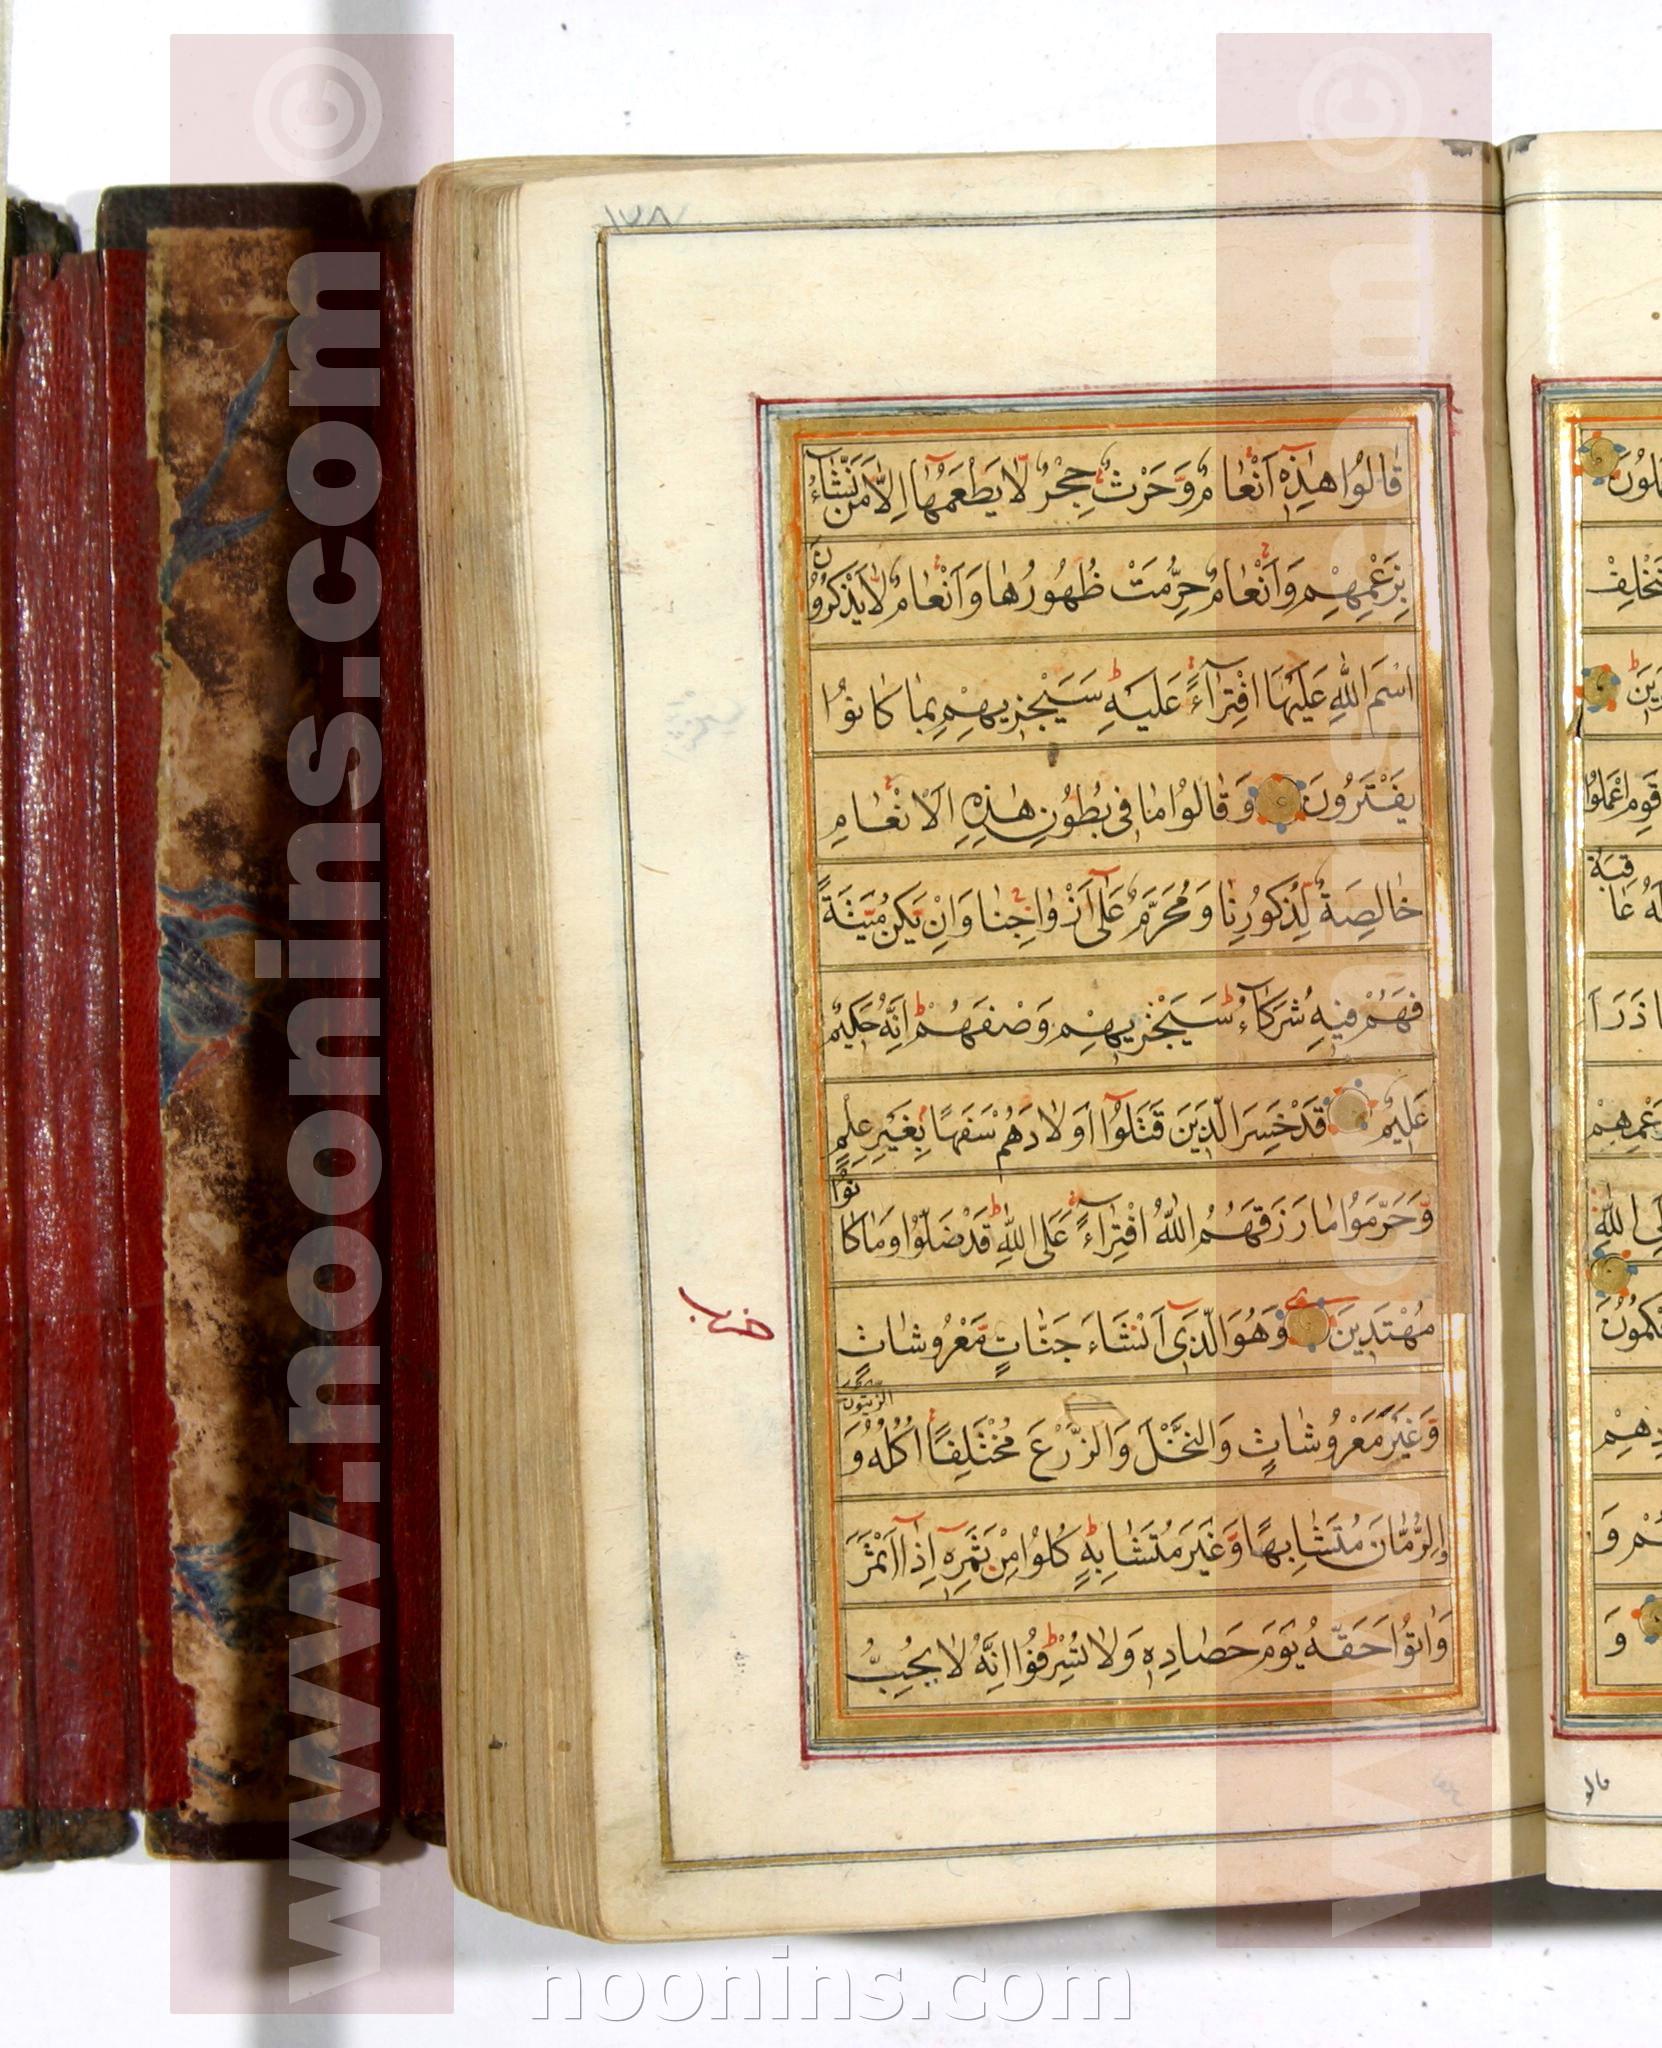 ١٧٨
قَالُوا هٰذِهٖ اَنْعَامٌ وَّحَرْثٌ حِجْرٌ لَّا يَطْعَمُهَا اِلَّا مَنْ نَّشَاءُ
بِزَعْمِهِمْ وَاَنْعَامٌ حُرِّمَتْ ظُهُورُهَا وَاَنْعَامٌ لَا يَذْكُرُونَ
اسْمَ اللّٰهِ عَلَيْهَا افْتِرَاءً عَلَيْهِ سَيَجْزِيهِمْ بِمَا كَانُوا
يَفْتَرُونَ وَقَالُوا مَا فِي بُطُونِ هٰذِهِ الْاَنْعَامِ
خَالِصَةٌ لِّذُكُورِنَا وَمُحَرَّمٌ عَلٰى اَزْوَاجِنَا وَاِنْ يَّكُنْ مَّيْتَةً
فَهُمْ فِيهِ شُرَكَاءُ سَيَجْزِيهِمْ وَصْفَهُمْ اِنَّهُ حَكِيمٌ
عَلِيمٌ قَدْ خَسِرَ الَّذِينَ قَتَلُوا اَوْلَادَهُمْ سَفَهًا بِغَيْرِ عِلْمٍ
وَّحَرَّمُوا مَا رَزَقَهُمُ اللّٰهُ افْتِرَاءً عَلَى اللّٰهِ قَدْ ضَلُّوا وَمَا كَانُوا
مُهْتَدِينَ وَهُوَ الَّذِي اَنْشَاَ جَنَّاتٍ مَّعْرُوشَاتٍ
وَّغَيْرَ مَعْرُوشَاتٍ وَالنَّخْلَ وَالزَّرْعَ مُخْتَلِفًا اُكُلُهُ وَالزَّيْتُونَ
وَالرُّمَّانَ مُتَشَابِهًا وَّغَيْرَ مُتَشَابِهٍ كُلُوا مِنْ ثَمَرِهٖ اِذَا اَثْمَرَ
وَاٰتُوا حَقَّهُ يَوْمَ حَصَادِهٖ وَلَا تُسْرِفُوا اِنَّهُ لَا يُحِبُّ
حزب
قالو
www.noonins.com ©
www.noonins.com ©
noonins.com